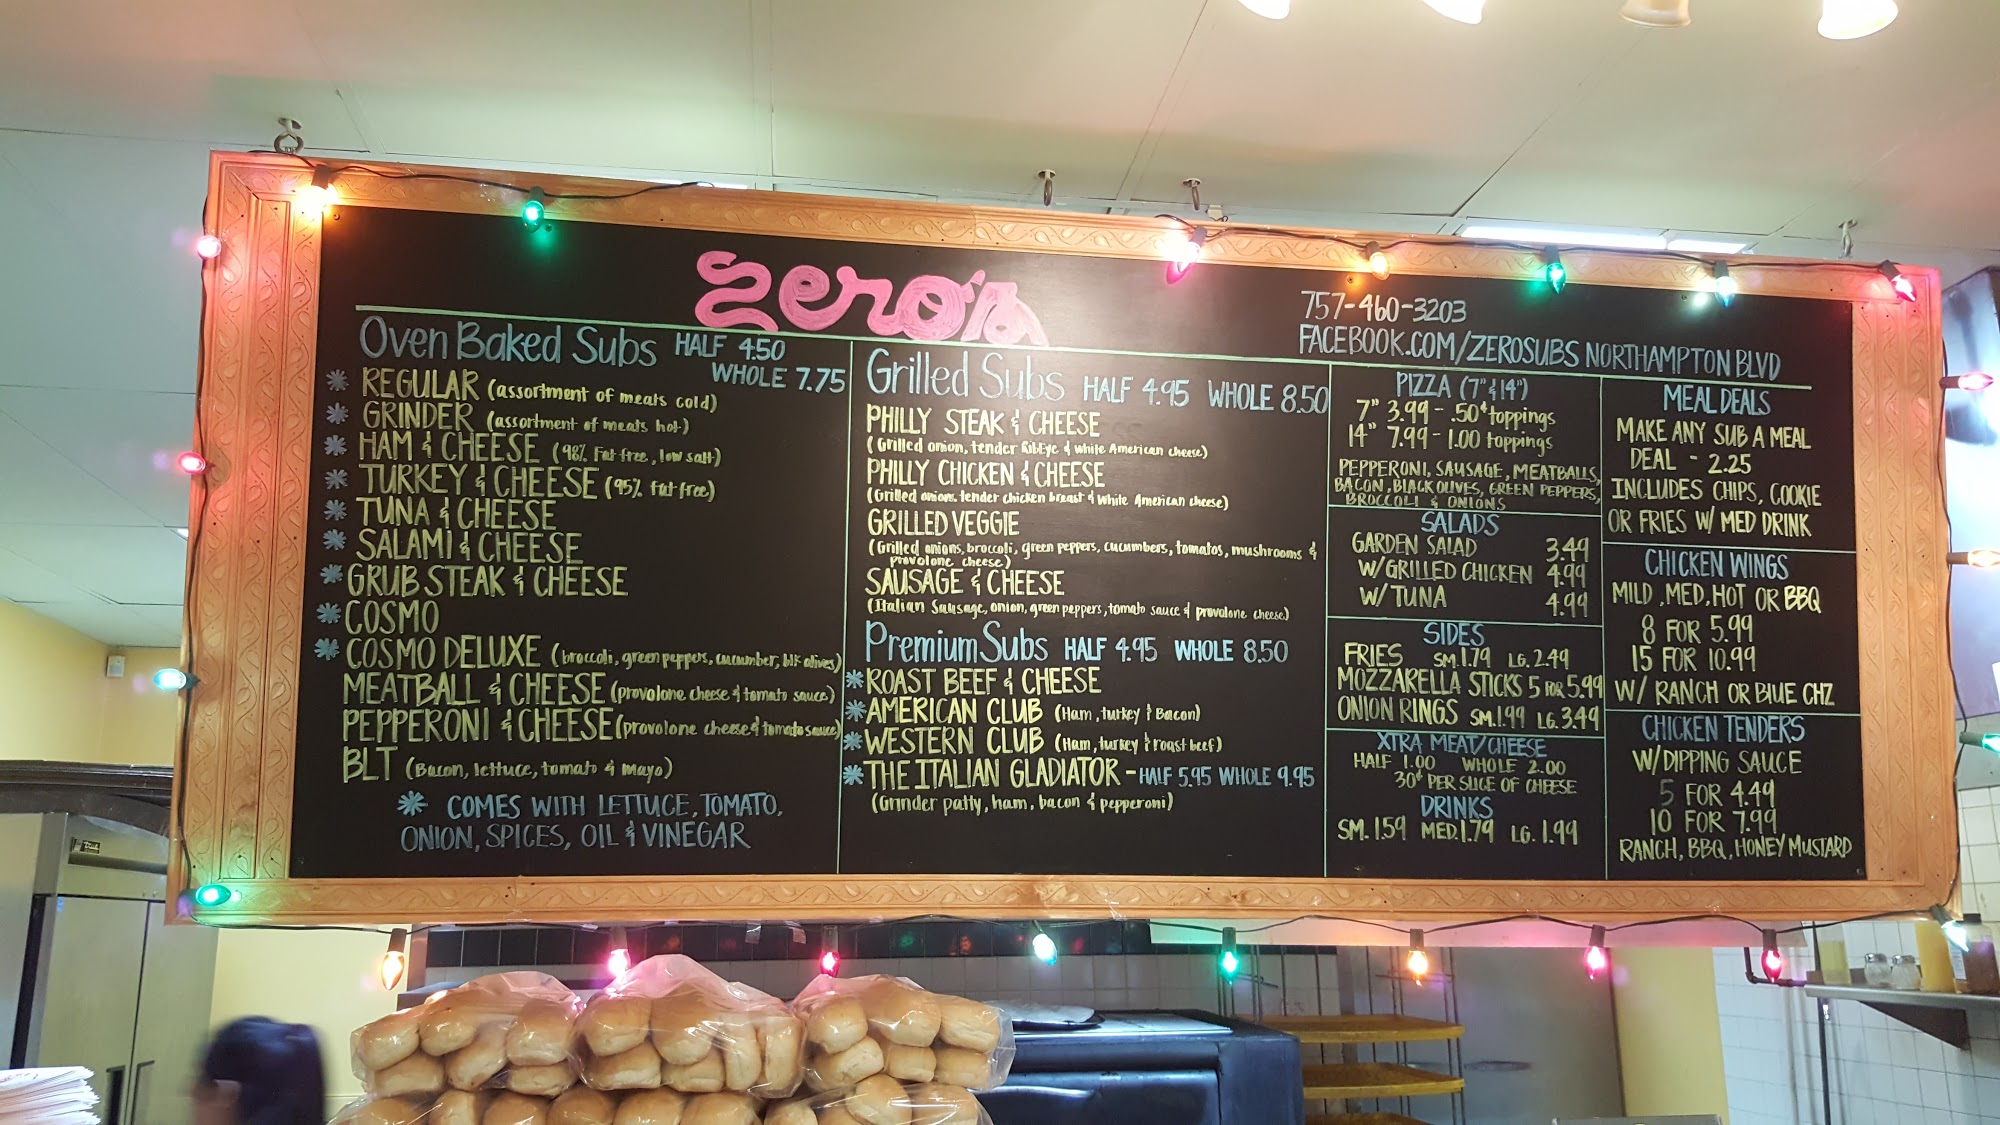 zero's
757-460-3203
FACEBOOK.COM/ZEROSUBS NORTHAMPTON BLVD
Oven Baked Subs HALF 4.50
WHOLE 7.75
* REGULAR (assortment of meats cold)
* GRINDER (assortment of meats hot)
* HAM & CHEESE (98% Fat free, low salt)
* TURKEY & CHEESE (95% fat free)
* TUNA & CHEESE
* SALAMI & CHEESE
* GRUB STEAK & CHEESE
* COSMO
* COSMO DELUXE (broccoli, green peppers, cucumber, blk olives)
MEATBALL & CHEESE (provolone cheese & tomato sauce)
PEPPERONI & CHEESE (provolone cheese & tomato sauce)
BLT (Bacon, lettuce, tomato & mayo)
* COMES WITH LETTUCE, TOMATO,
ONION, SPICES, OIL & VINEGAR
Grilled Subs HALF 4.95 WHOLE 8.50
PHILLY STEAK & CHEESE
(Grilled onion, tender RibEye & white American cheese)
PHILLY CHICKEN & CHEESE
(Grilled onions, tender chicken breast & white American cheese)
GRILLED VEGGIE
(Grilled onions, broccoli, green peppers, cucumbers, tomatos, mushrooms &
provolone cheese)
SAUSAGE & CHEESE
(Italian Sausage, onion, green peppers, tomato sauce & provolone cheese)
Premium Subs HALF 4.95 WHOLE 8.50
* ROAST BEEF & CHEESE
* AMERICAN CLUB (Ham, turkey & Bacon)
* WESTERN CLUB (Ham, turkey & roast beef)
* THE ITALIAN GLADIATOR - HALF 5.95 WHOLE 9.95
(Grinder patty, ham, bacon & pepperoni)
PIZZA (7" & 14")
7" 3.99 - .50¢ toppings
14" 7.99 - 1.00 toppings
PEPPERONI, SAUSAGE, MEATBALLS,
BACON, BLACK OLIVES, GREEN PEPPERS,
BROCCOLI & ONIONS
SALADS
GARDEN SALAD 3.49
W/GRILLED CHICKEN 4.99
W/ TUNA 4.99
SIDES
FRIES SM. 1.79 LG. 2.49
MOZZARELLA STICKS 5 FOR 5.99
ONION RINGS SM. 1.99 LG. 3.49
XTRA MEAT/CHEESE
HALF 1.00 WHOLE 2.00
30¢ PER SLICE OF CHEESE
DRINKS
SM. 1.59 MED. 1.79 LG. 1.99
MEAL DEALS
MAKE ANY SUB A MEAL
DEAL - 2.25
INCLUDES CHIPS, COOKIE
OR FRIES W/ MED DRINK
CHICKEN WINGS
MILD, MED, HOT OR BBQ
8 FOR 5.99
15 FOR 10.99
W/ RANCH OR BLUE CHZ
CHICKEN TENDERS
W/DIPPING SAUCE
5 FOR 4.49
10 FOR 7.99
RANCH, BBQ, HONEY MUSTARD